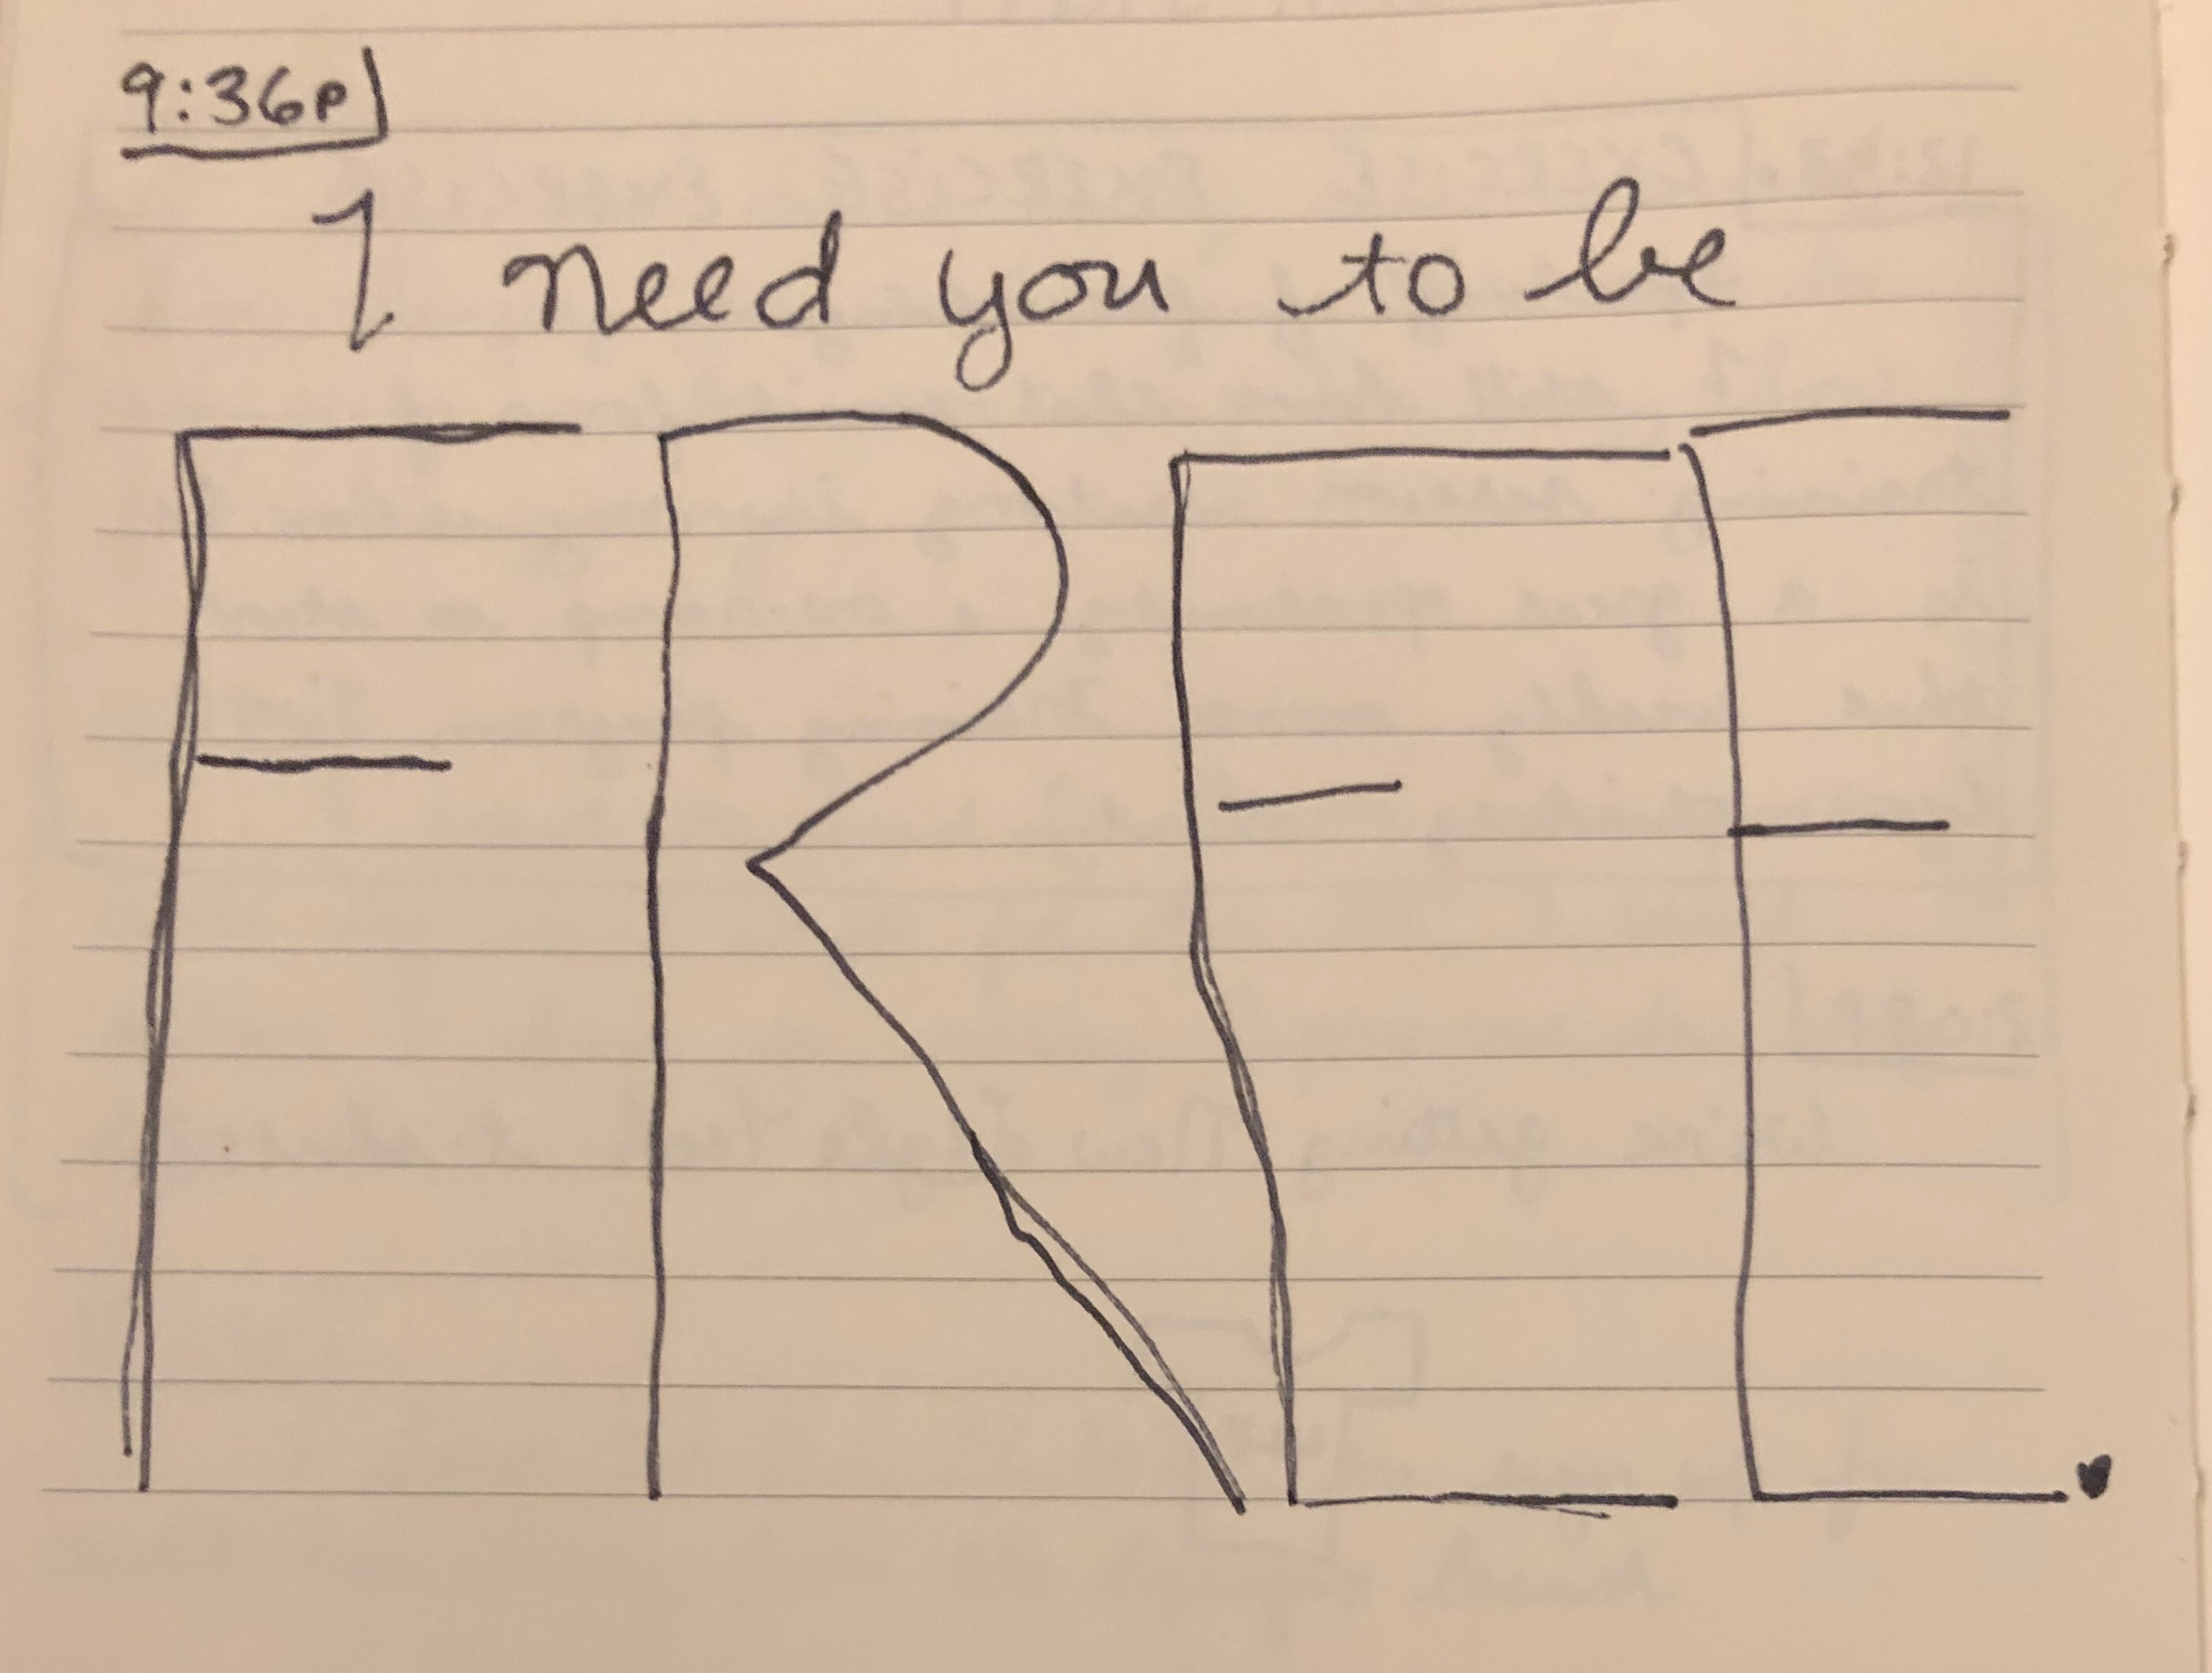 9:36P
I need you to be
FREE.